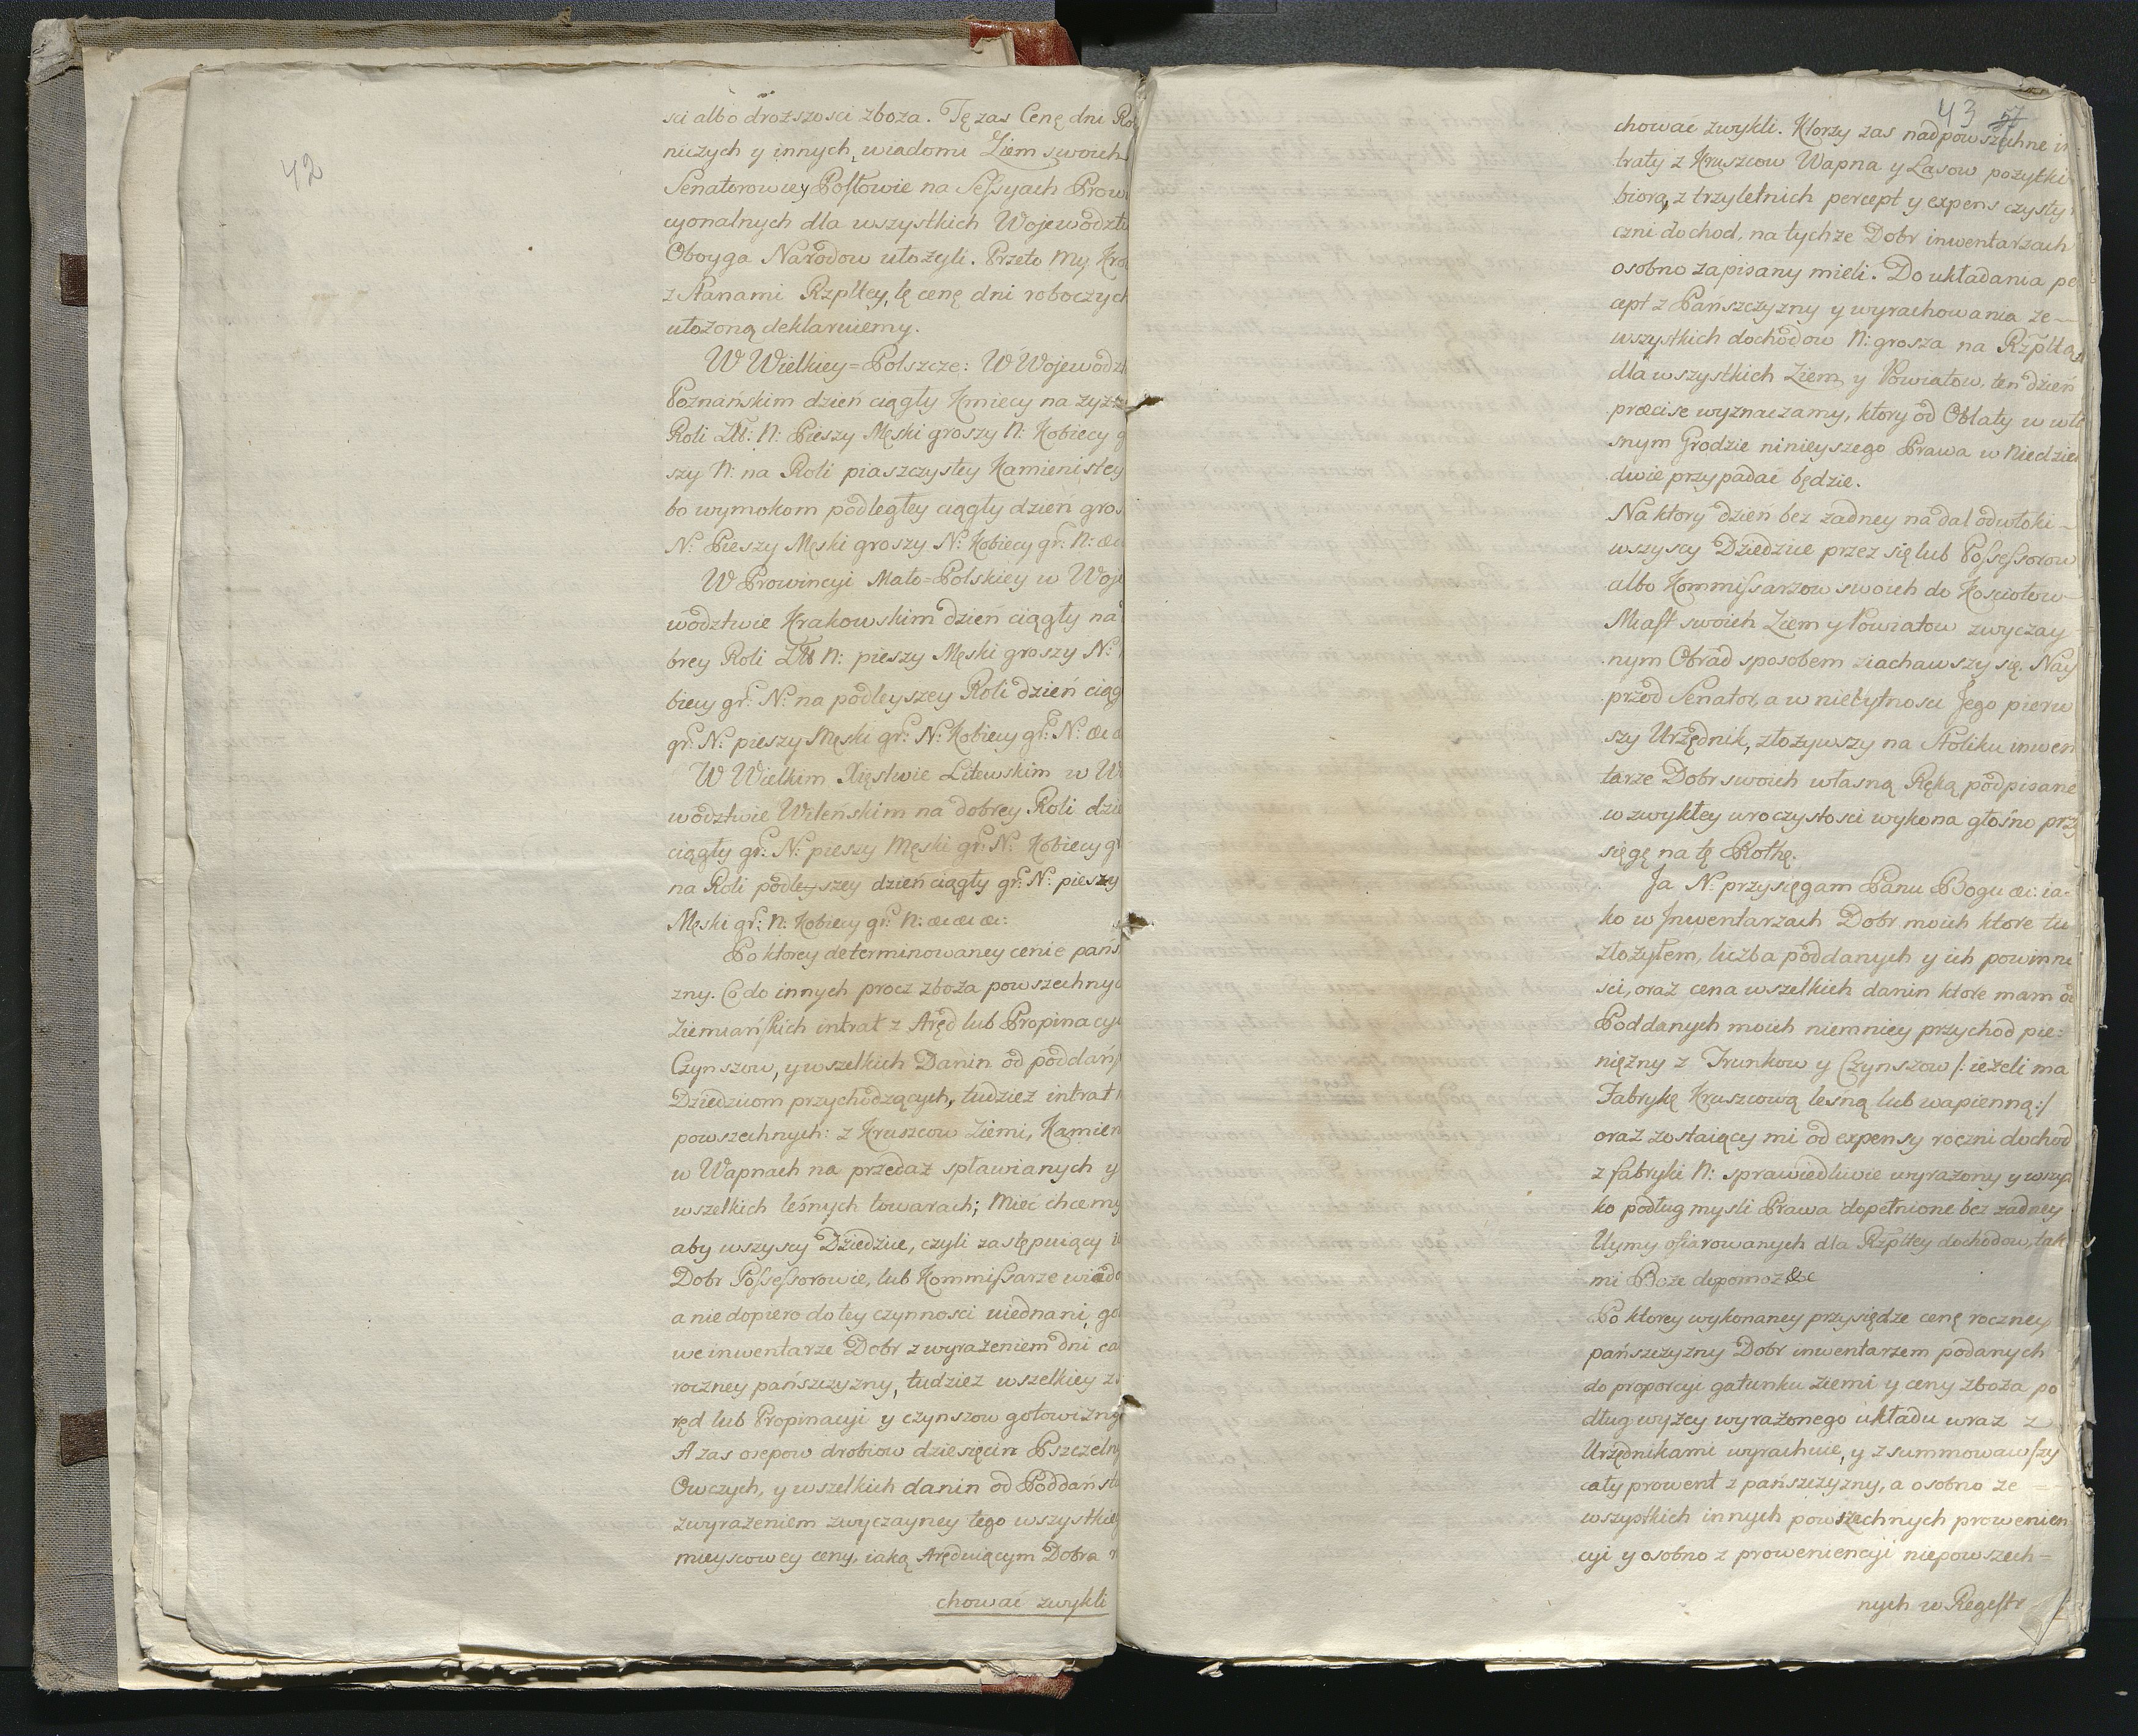 42
sci albo drozszosci zboza. Tę zas Cenę dni Ro
niczych y innych, wiadomi Ziem swoich
Senatorowie y Posłowie na Sessyach Prow
cyonalnych dla wszystkich Wojewodztw
Oboyga Narodow ułożyli. Przeto My Kro
z Stanami Rzpltey, tę cenę dni roboczych
ułożoną deklaruiemy.
W Wielkiey=Polszcze: W Wojewodz
Poznańskim dzień ciągły Kmiecy na żyz
Roli Zł: N: Pieszy Męski groszy N: Kobiecy g
szy N: na Roli piaszczystey Kamienistey
bo wymokom podległey ciągły dzień gros
N: Pieszy Męski groszy N: Kobiecy gr: N: &c
W Prowincyi Mało=Polskiey w Woje
wodztwie Krakowskim dzień ciągły na
brey Roli Zł N: pieszy Męski groszy N:
biecy gr: N: na podleyszey Roli dzień ciąg
gr: N: pieszy Męski gr: N: Kobiecy gr: N: &c
W Wielkim Xięstwie Litewskim w W
wodztwie Wileńskim na dobrey Roli dzie
ciągły gr: N: pieszy Męski gr: N: Kobiecy gr
na Roli podleyszey dzień ciągły gr: N: pieszy
Męski gr: N: Kobiecy gr: N: &c &c &c:
Po ktorey determinowaney cenie pańs
zny. Co do innych procz zboża powszechnyc
Ziemiańskich intrat z Aręd lub Propinacyi
Czynszow, y wszelkich Danin od poddańs
Dziedzicom przychodzących, tudziez intrat
powszechnych: z Kruszcow Ziemi, Kamien
w Wapnach na przedaz spławianych y
wszelkich leśnych towarach; Mieć chcemy
aby wszyscy Dziedzice, czyli zastępuiący i
Dobr Possessorowie, lub Kommissarze wiado
a nie dopiero do tey czynnosci uiednani, go
we inwentarze Dobr z wyrażeniem dni ca
roczney pańszczyzny, tudziez wszelkiey z
ręd lub Propinacyi y czynszow gotowizny
A zas osepow drobiow dziesięcin Pszczelny
Owczych, y wszelkich danin od Poddańst
z wyrażeniem zwyczayney tego wszystkieg
mieyscowey ceny, iaką Arędniącym Dobra r
chować zwykli
43 57
chować zwykli. Ktorzy zas nad powszechne in
traty z Kruszcow Wapna y Lasow pożytki
biorą, z trzyletnich percept y expens czysty
czni dochod, na tychze Dobr inwentarzach
osobno zapisany mieli. Do układania pe
cept z Pańszczyzny y wyrachowania ze
wszystkich dochodow N: grosza na Rzpltą
dla wszystkich Ziem y Powiatow, ten dzień
præcise wyznaczamy, ktory od Oblaty w wła
snym Grodzie ninieyszego Prawa w Niedziel
dwie przypadać będzie.
Na ktory dzień bez żadney nadal odwłoki
wszyscy Dziedzice przez się lub Possessorow
albo Kommissarzow swoich do Kosciołow
Miast swoich Ziem y Powiatow zwyczay
nym Obrad sposobem ziachawszy się. Nay
przod Senator, a w niebytnosci Jego pierw
szy Urzędnik, złożywszy na Stoliku inwen
tarze Dobr swoich własną Ręką podpisane
w zwykłey uroczystosci wykona głośno przy
sięgę na tę Rothę.
Ja N: przysięgam Panu Bogu &c: ia-
ko w Jnwentarzach Dobr moich ktore tu
złożyłem, liczba poddanych y ich powinno
sci, oraz cena wszelkich danin ktore mam od
Poddanych moich niemniey przychod pie:
niężny z Trunkow y Czynszow /: ieżeli ma
Fabrykę Kruszcową lesną lub wapienną:/
oraz zostaiący mi od expensy roczni dochod
z fabryki N: sprawiedliwie wyrażony y wszys
ko podług mysli Prawa dopełnione bez żadney
Uymy ofiarowanych dla Rzpltey dochodow, tak
mi Boże dopomoż &c
Po ktorey wykonaney przysiędze cenę roczney
pańszczyzny Dobr inwentarzem podanych
do proporcyi gatunku ziemi y ceny zboża po
dług wyżey wyrażonego układu wraz z
Urzędnikami wyrachuie, y z summowawszy
cały prowent z pańszczyzny, a osobno ze =
wszystkich innych powszechnych prowenien
cyi y osobno z proweniencyi niepowszech=
nych w Regestr